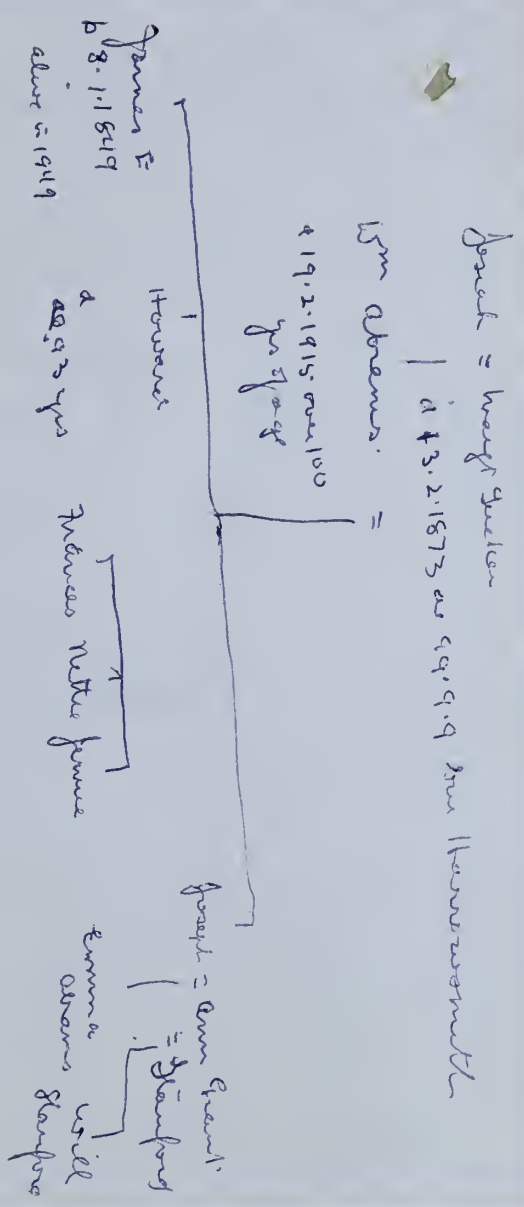 Josiah = Margt Tucker
d 13.2.1873 ae 99.9.9 bur
Wm Abrams. =
d 19.2.1915 over 100
yrs of age
James E
b 8.1.1849
alive in 1949
Howard
d
ae 93 yrs
Frances Nettie Jennie
Joseph = Ann Grant
= Stanford
Emma
Abrams
Will
Stanford